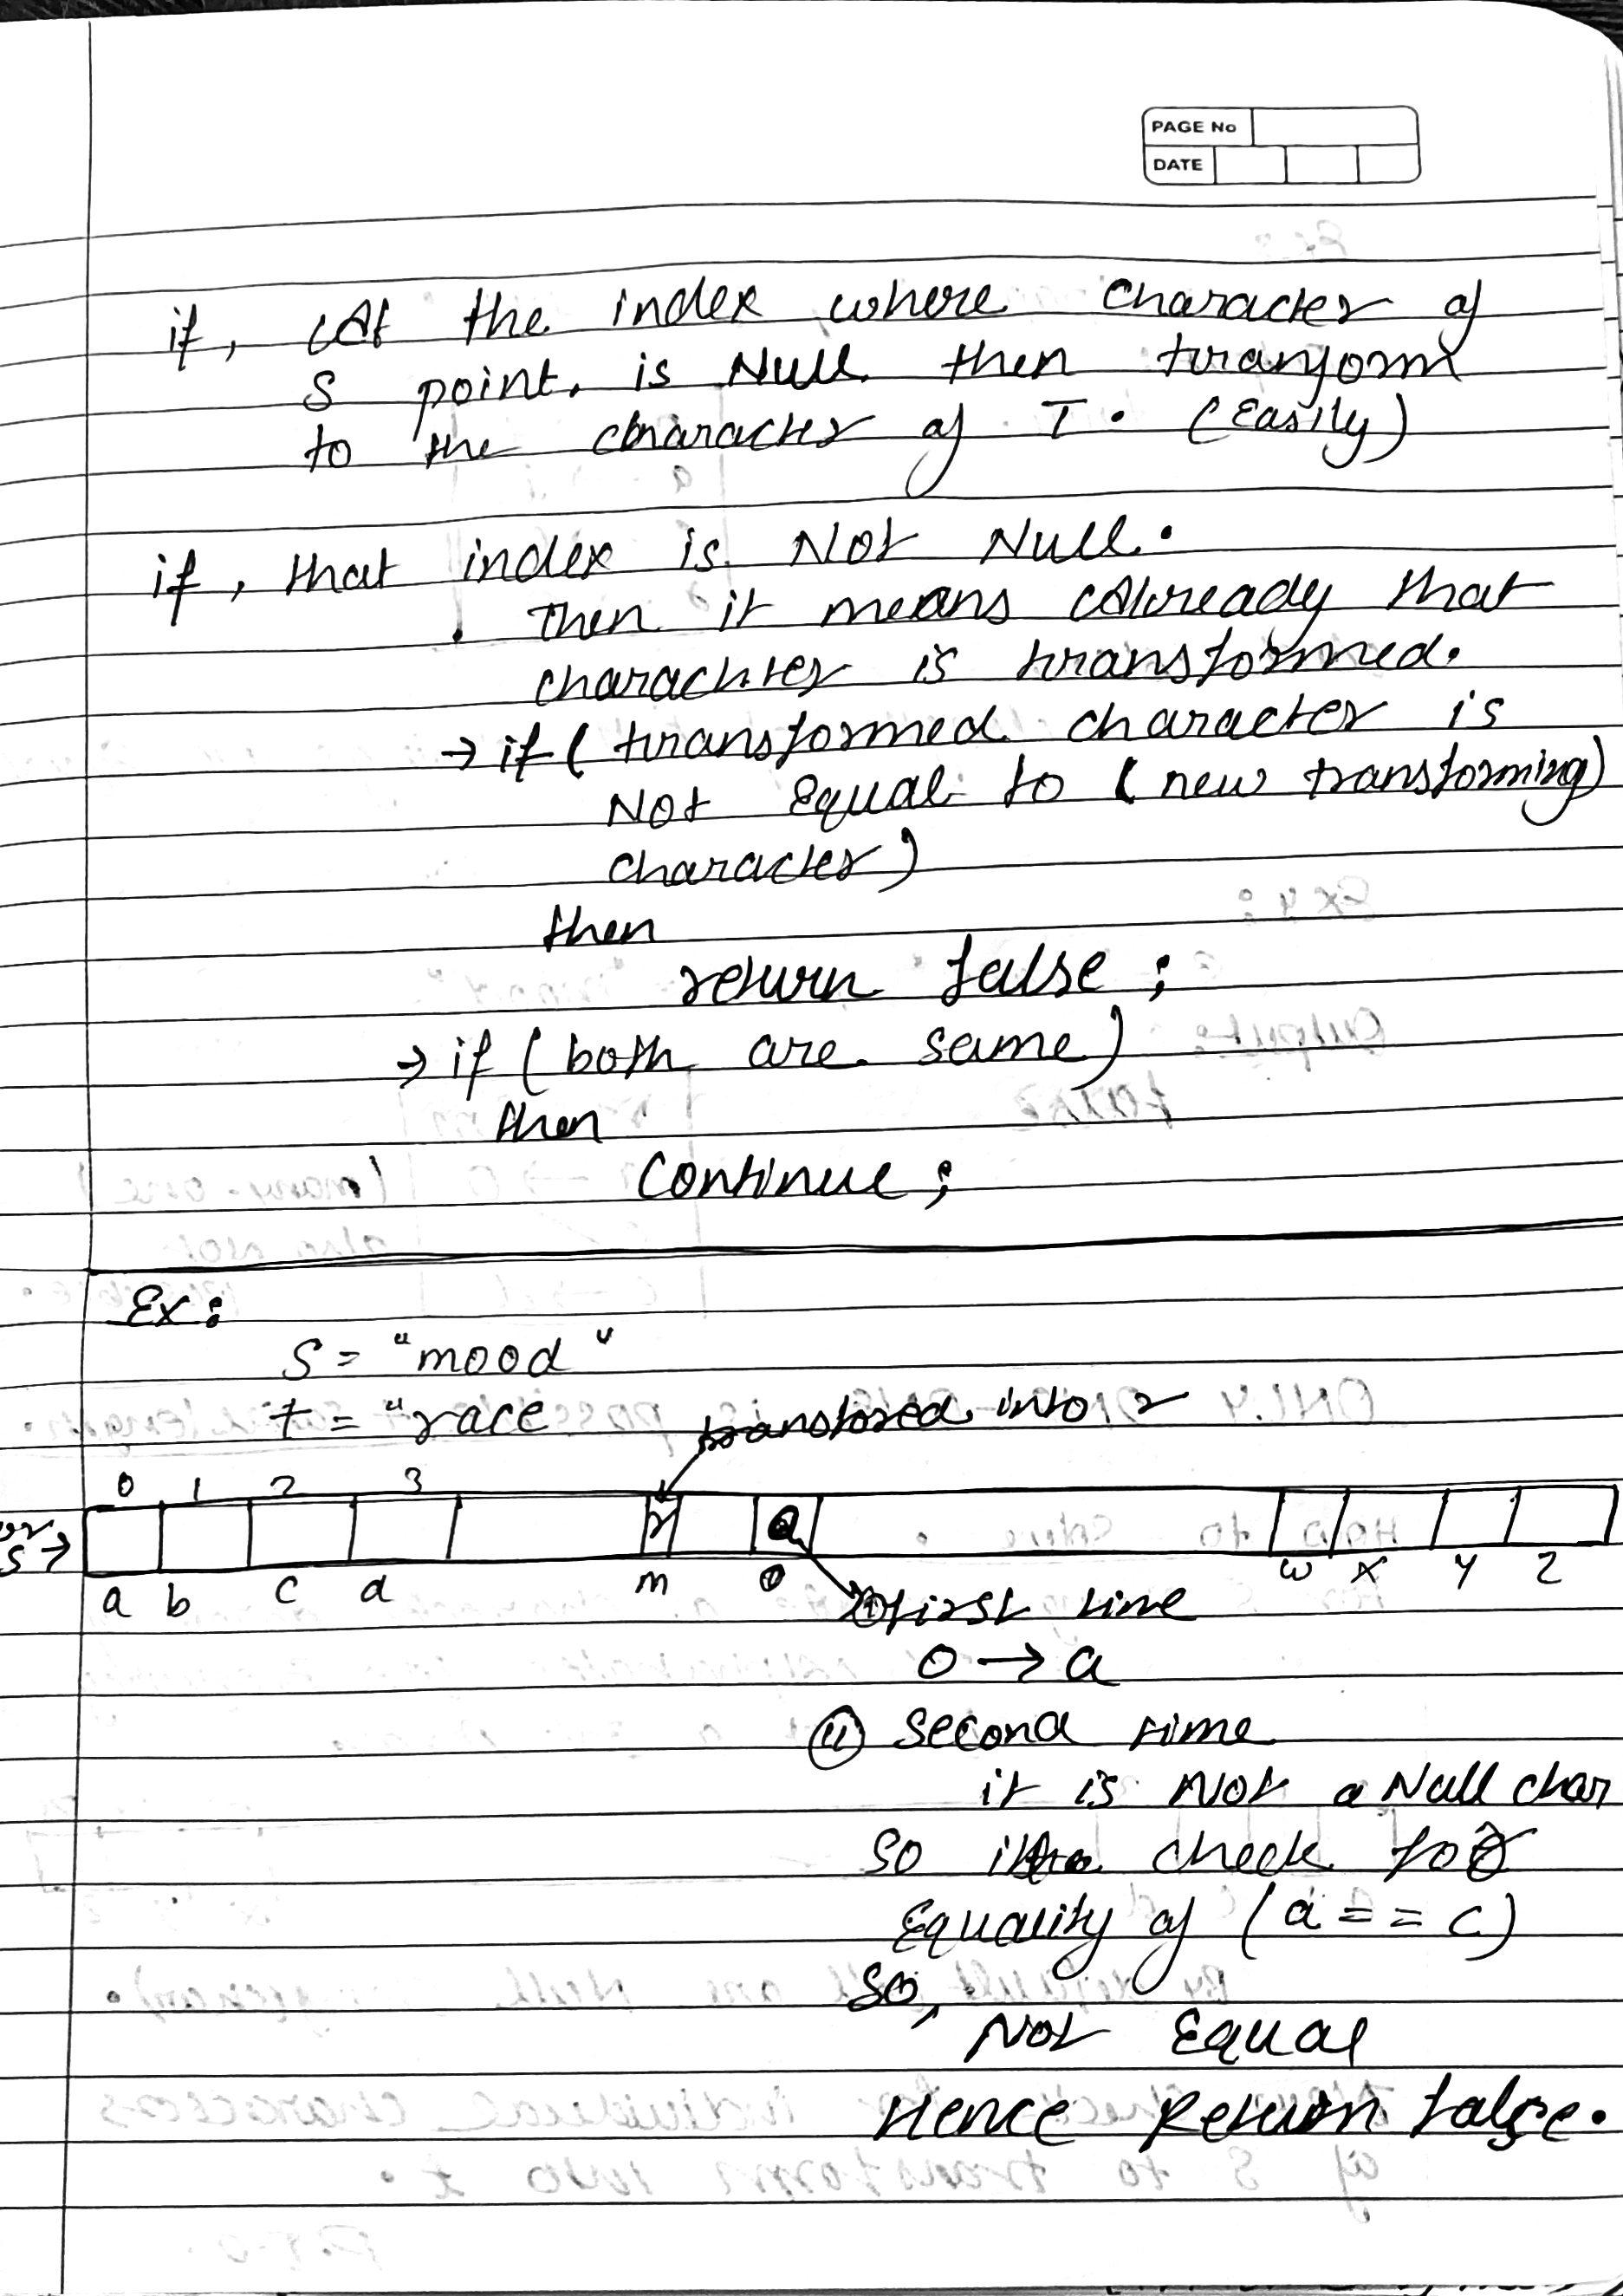 PAGE No
DATE
if, At the index where character of
S point, is Null then tranform
to the character of T. (Easily)
if, that index is Not Null.
Then it means Already that
charachter is transformed.
→ if ( transformed character is
Not Equal to ( new transforming)
character)
then
return false ;
→ if ( both are same)
then
Continue ;
Ex:
S = "mood"
t = "race
transfored into r
0 1 2 3
S →
r a
a b c d m o w x y z
① first time
o → a
⑪ second time
it is Not a Null char
So check for
Equality of (a == c)
So,
Not Equal
Hence Return false.